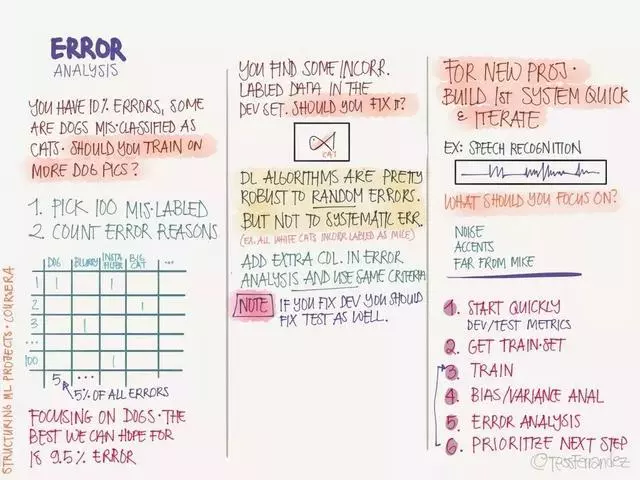 ERROR
ANALYSIS
YOU HAVE 10% ERRORS, SOME
ARE DOGS MIS-CLASSIFIED AS
CATS. SHOULD YOU TRAIN ON
MORE DOG PICS?
1. PICK 100 MIS-LABLED
2 COUNT ERROR REASONS
DOG BLURRY INSTA FILTER BIG CAT ...
1
2
3
...
100
5 ...
5% OF ALL ERRORS
FOCUSING ON DOGS. THE
BEST WE CAN HOPE FOR
IS 9.5% ERROR
STRUCTURING ML PROJECTS. COURSERA
YOU FIND SOME INCORR.
LABLED DATA IN THE
DEV SET. SHOULD YOU FIX IT?
CAT
DL ALGORITHMS ARE PRETTY
ROBUST TO RANDOM ERRORS.
BUT NOT TO SYSTEMATIC ERR.
(EX. ALL WHITE CATS INCORR LABLED AS MICE)
ADD EXTRA COL. IN ERROR
ANALYSIS AND USE SAME CRITERIA
NOTE IF YOU FIX DEV YOU SHOULD
FIX TEST AS WELL.
FOR NEW PROJ.
BUILD 1st SYSTEM QUICK
& ITERATE
EX: SPEECH RECOGNITION
WHAT SHOULD YOU FOCUS ON?
NOISE
ACCENTS
FAR FROM MIKE
1. START QUICKLY
DEV/TEST METRICS
2. GET TRAIN-SET
3. TRAIN
4. BIAS/VARIANCE ANAL
5 ERROR ANALYSIS
6. PRIORITIZE NEXT STEP
©TessFerrandez